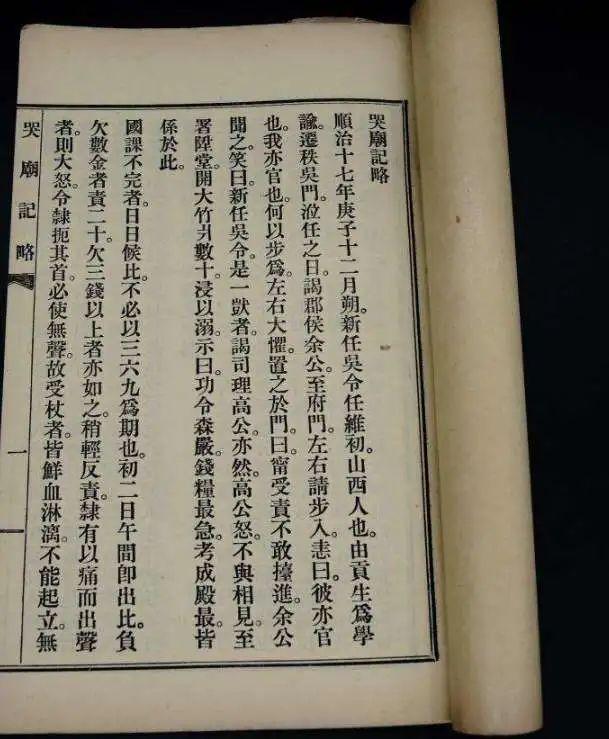 哭廟記略
順治十七年庚子十二月朔。新任吳令任維初。山西人也。由貢生爲學
諭。遷秩吳門。涖任之日。謁郡侯余公。至府門。左右請步入。恚曰。彼亦官
也。我亦官也。何以步爲。左右大懼。置之於門。曰。甯受責不敢擡進。余公
聞之。笑曰。新任吳令。是一獃者。謁司理高公。亦然。高公怒。不與相見。至
署陞堂。開大竹爿數十。浸以溺。示曰。功令森嚴。錢糧最急。考成殿最。皆
係於此。
國課不完者。日日候比。不必以三六九爲期也。初二日午間卽出比。負
欠數金者責二十。欠三錢以上者亦如之。稍輕反責。隸有以痛而出聲
者。則大怒。令隸扼其首。必使無聲。故受杖者皆鮮血淋漓。不能起立。無
哭廟記略
一